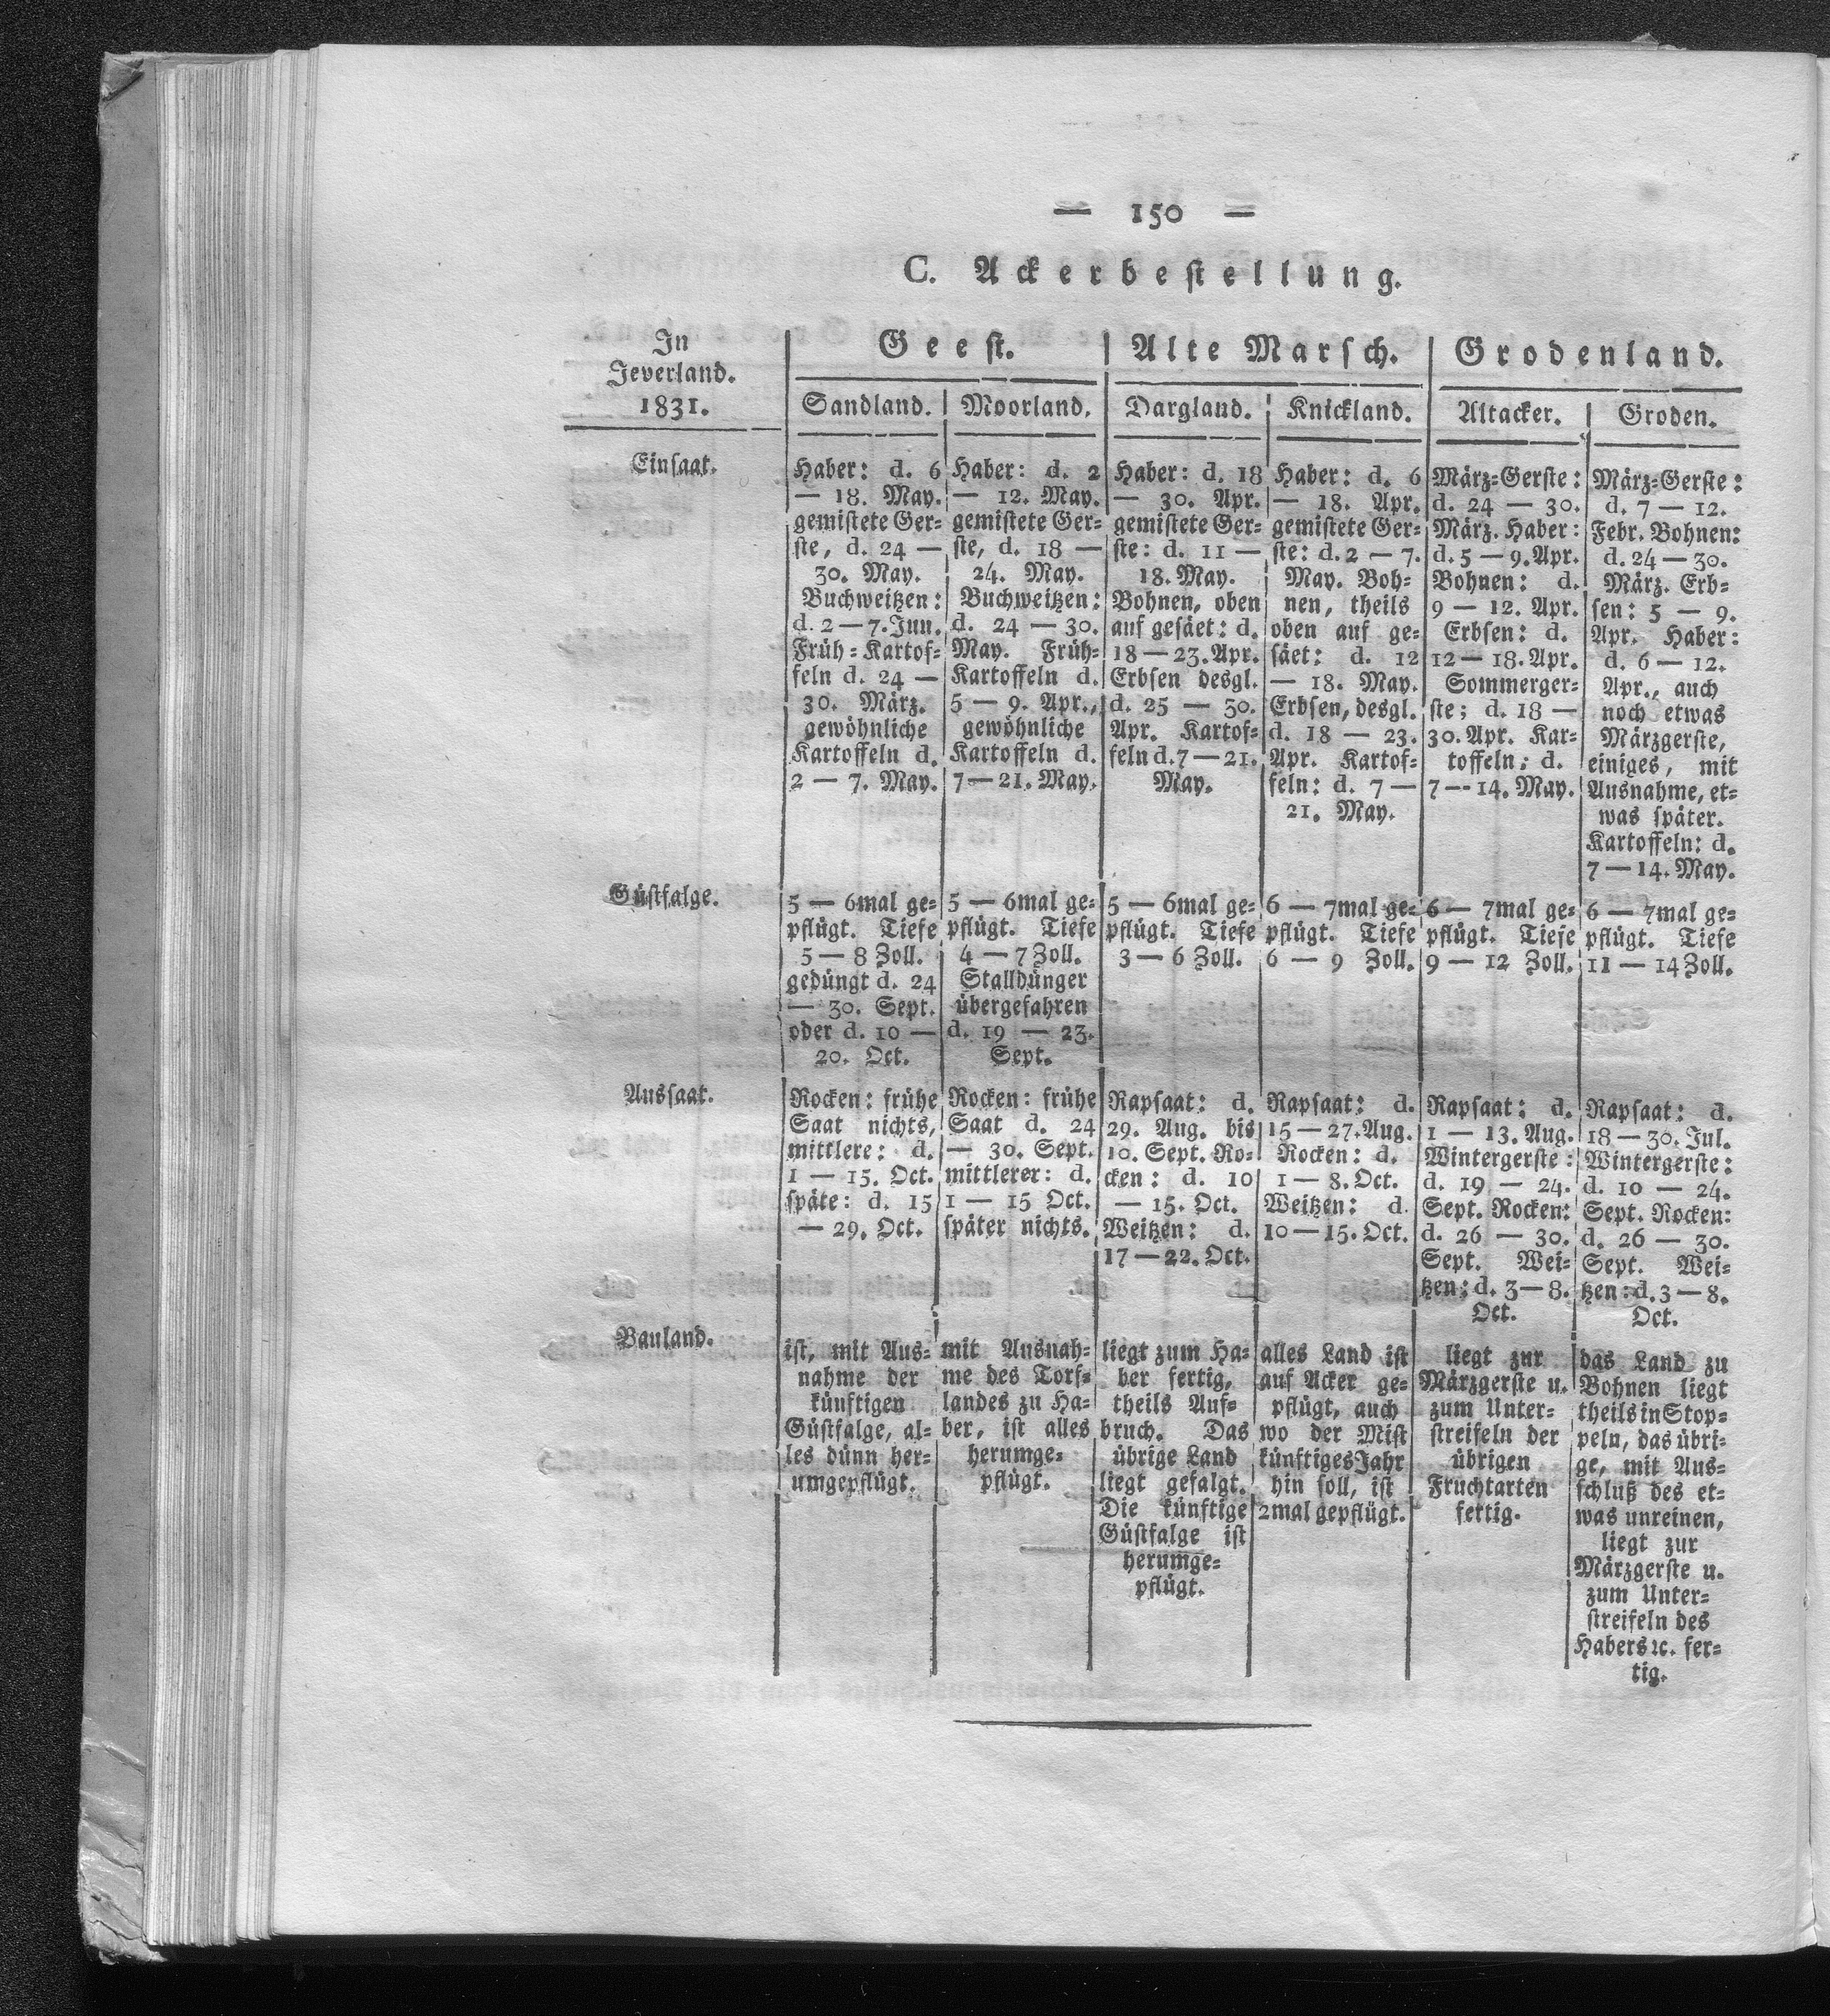 — 150 —
C. Ackerbestellung.
In
Jeverland.
1831.
Geest.
Alte Marsch.
Grodenland.
Sandland.
Moorland.
Dargland.
Knickland.
Altacker.
Groden.
Einsaat.
Haber: d. 6
— 18. May.
gemistete Ger-
ste, d. 24 —
30. May.
Buchweitzen:
d. 2 — 7. Jun.
Früh-Kartof-
feln d. 24 —
30. März.
gewöhnliche
Kartoffeln d.
2 — 7. May.
Haber: d. 2
— 12. May.
gemistete Ger-
ste, d. 18 —
24. May.
Buchweitzen:
d. 24 — 30.
May. Früh-
Kartoffeln d.
5 — 9. Apr.,
gewöhnliche
Kartoffeln d.
7 — 21. May.
Haber: d. 18
— 30. Apr.
gemistete Ger-
ste: d. 11 —
18. May.
Bohnen, oben
auf gesäet: d.
18 — 23. Apr.
Erbsen desgl.
d. 25 — 30.
Apr. Kartof-
feln d. 7 — 21.
May.
Haber: d. 6
— 18. Apr.
gemistete Ger-
ste: d. 2 — 7.
May. Boh-
nen, theils
oben auf ge-
säet: d. 12
— 18. May.
Erbsen, desgl.
d. 18 — 23.
Apr. Kartof-
feln: d. 7 —
21. May.
März-Gerste:
d. 24 — 30.
März. Haber:
d. 5 — 9. Apr.
Bohnen: d.
9 — 12. Apr.
Erbsen: d.
12 — 18. Apr.
Sommerger-
ste; d. 18 —
30. Apr. Kar-
toffeln; d.
7 — 14. May.
März-Gerste:
d. 7 — 12.
Febr. Bohnen:
d. 24 — 30.
März. Erb-
sen: 5 — 9.
Apr. Haber:
d. 6 — 12.
Apr., auch
noch etwas
Märzgerste,
einiges, mit
Ausnahme, et-
was später.
Kartoffeln: d.
7 — 14. May.
Güstfalge.
5 — 6mal ge-
pflügt. Tiefe
5 — 8 Zoll.
gedüngt d. 24
— 30. Sept.
oder d. 10 —
20. Oct.
5 — 6mal ge-
pflügt. Tiefe
4 — 7 Zoll.
Stalldünger
übergefahren
d. 19 — 23.
Sept.
5 — 6mal ge-
pflügt. Tiefe
3 — 6 Zoll.
6 — 7mal ge-
pflügt. Tiefe
6 — 9 Zoll.
6 — 7mal ge-
pflügt. Tiefe
9 — 12 Zoll.
6 — 7mal ge-
pflügt. Tiefe
11 — 14 Zoll.
Aussaat.
Rocken: frühe
Saat nichts,
mittlere: d.
1 — 15. Oct.
späte: d. 15
— 29. Oct.
Rocken: frühe
Saat d. 24
— 30. Sept.
mittlerer: d.
1 — 15 Oct.
später nichts.
Rapsaat: d.
29. Aug. bis
10. Sept. Ro-
cken: d. 10
— 15. Oct.
Weitzen: d.
17 — 22. Oct.
Rapsaat: d.
15 — 27. Aug.
Rocken: d.
1 — 8. Oct.
Weitzen: d.
10 — 15. Oct.
Rapsaat: d.
1 — 13. Aug.
Wintergerste:
d. 19 — 24.
Sept. Rocken:
d. 26 — 30.
Sept. Wei-
tzen: d. 3 — 8.
Oct.
Rapsaat: d.
18 — 30. Jul.
Wintergerste:
d. 10 — 24.
Sept. Rocken:
d. 26 — 30.
Sept. Wei-
tzen: d. 3 — 8.
Oct.
Bauland.
ist, mit Aus-
nahme der
künftigen
Güstfalge, al-
les dünn her-
umgepflügt.
mit Ausnah-
me des Torf-
landes zu Ha-
ber, ist alles
herumge-
pflügt.
liegt zum Ha-
ber fertig,
theils Auf-
bruch. Das
übrige Land
liegt gefalgt.
Die künftige
Güstfalge ist
herumge-
pflügt.
alles Land ist
auf Acker ge-
pflügt, auch
wo der Mist
künftiges Jahr
hin soll, ist
2mal gepflügt.
liegt zur
Märzgerste u.
zum Unter-
streifeln der
übrigen
Fruchtarten
fertig.
das Land zu
Bohnen liegt
theils in Stop-
peln, das übri-
ge, mit Aus-
schluß des et-
was unreinen,
liegt zur
Märzgerste u.
zum Unter-
streifeln des
Habers ꝛc. fer-
tig.